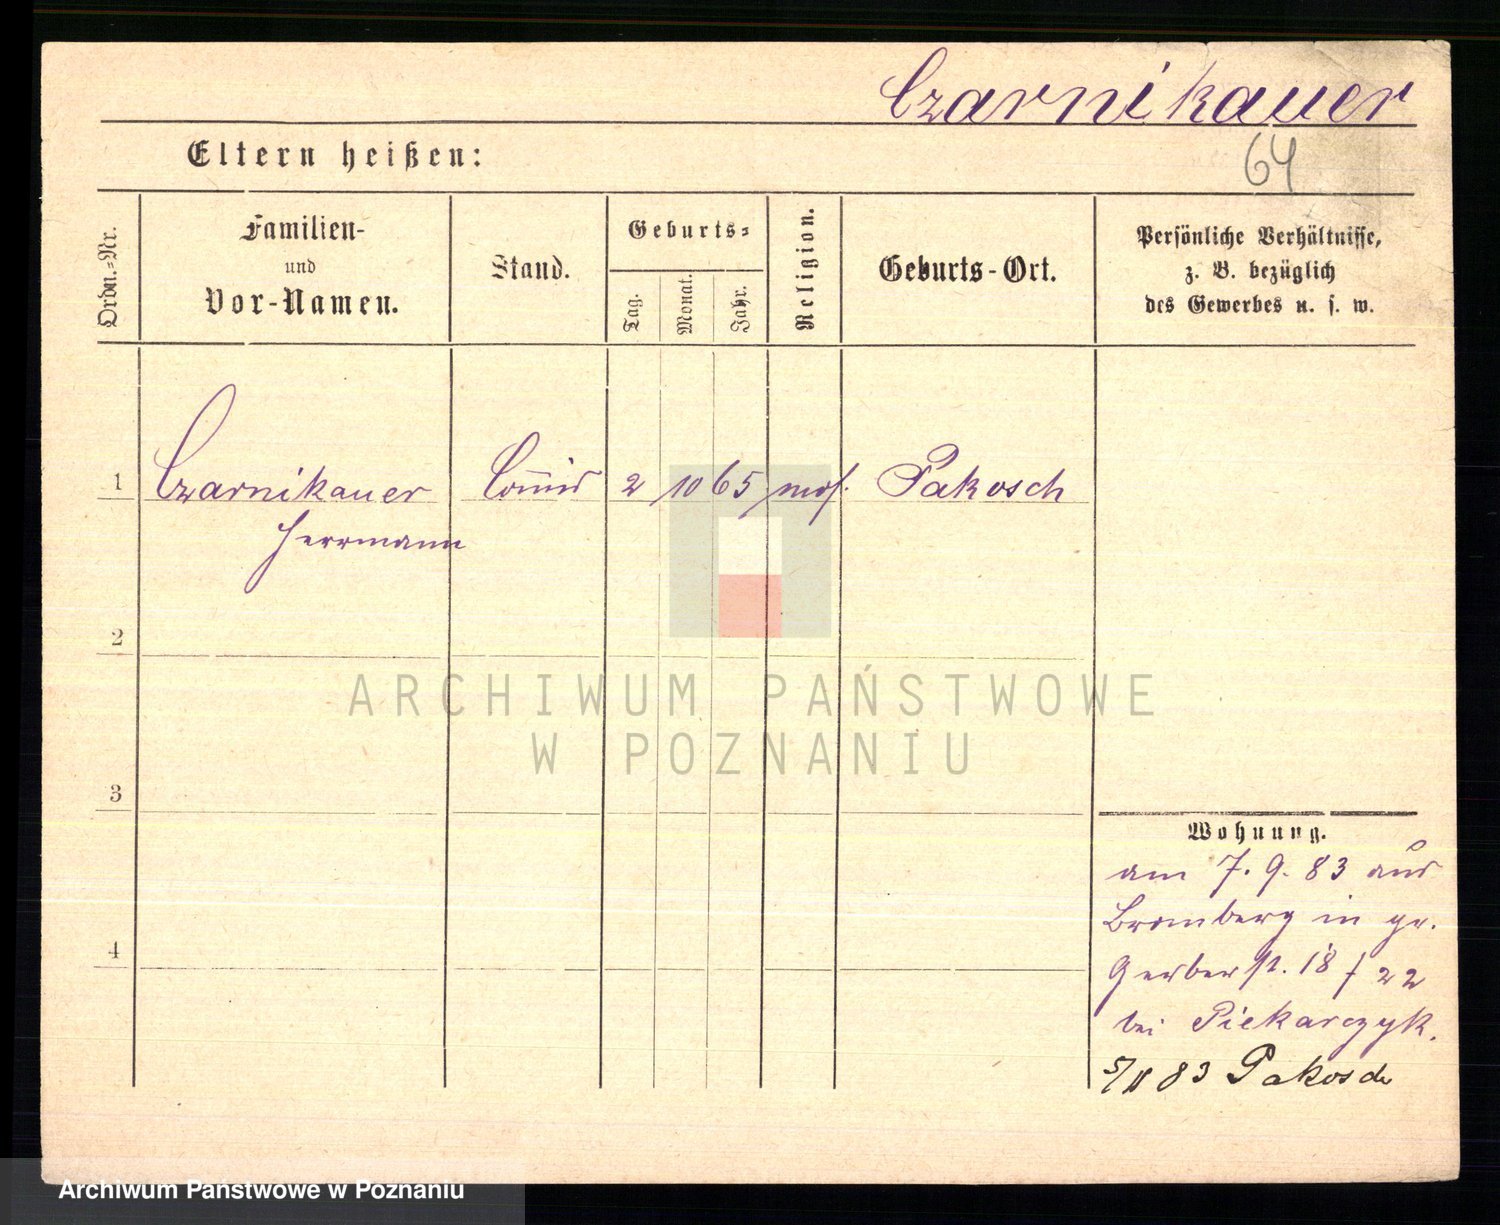 Czarnikauer
Eltern heißen:
64
Orden.-Nr.
Familien-
und
Vor-Namen.
Stand.
Geburts-
Tag.
Monat.
Jahr.
Religion.
Geburts-Ort.
Persönliche Verhältnisse,
z. B. bezüglich
des Gewerbes u. s. w.
1 Czarnikauer Commis 2 10 65 mos. Pakosch
Herrmann
2
ARCHIWUM PAŃSTWOWE
W POZNANIU
3
Wohnung.
am 7. 9. 83 aus
Bromberg in gr.
4
Gerberst. 18 / 22
bei Piekarczyk.
5/11 83 Pakosch
Archiwum Państwowe w Poznaniu